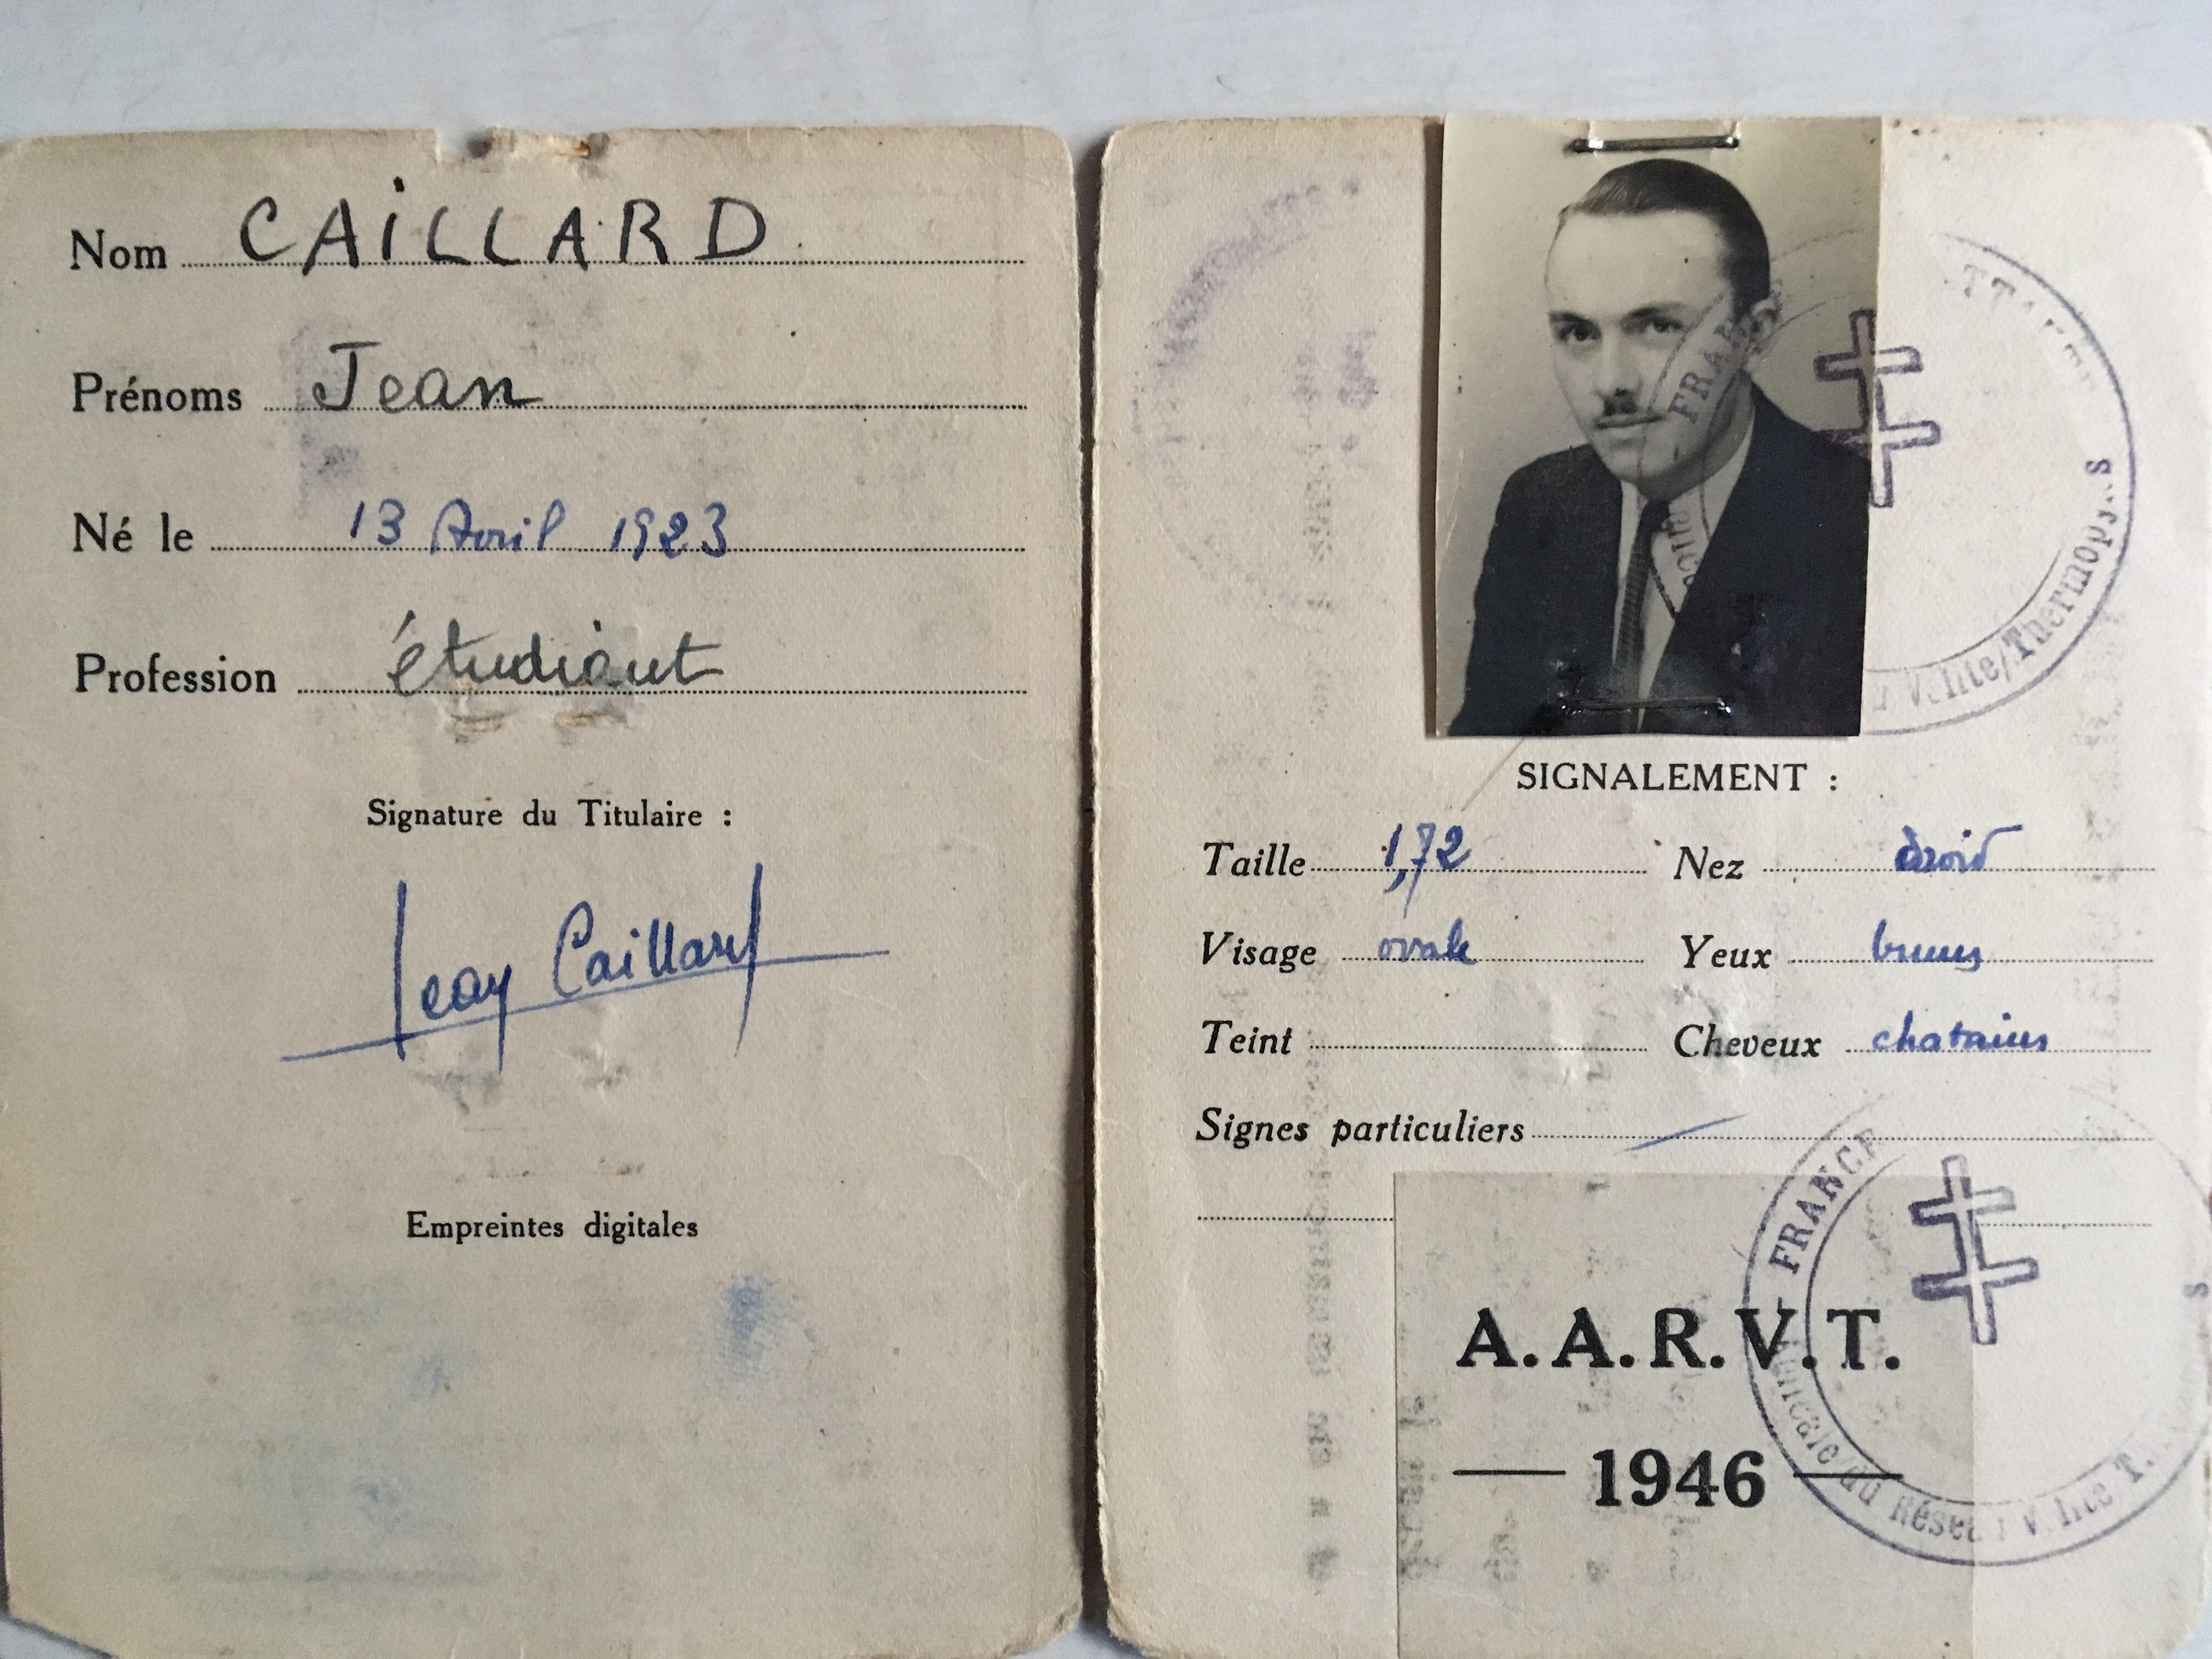 Nom CAiLLARD
Prénoms Jean
Né le 13 Avril 1923
Profession étudiant
Signature du Titulaire :
Jean Caillard
Empreintes digitales
FRANCE
Thermopyles
SIGNALEMENT :
Taille 1,72 Nez droit
Visage ovale Yeux bruns
Teint Cheveux chatains
Signes particuliers
FRANCE
Amicale du Réseau
A.A.R.V.T.
— 1946 —